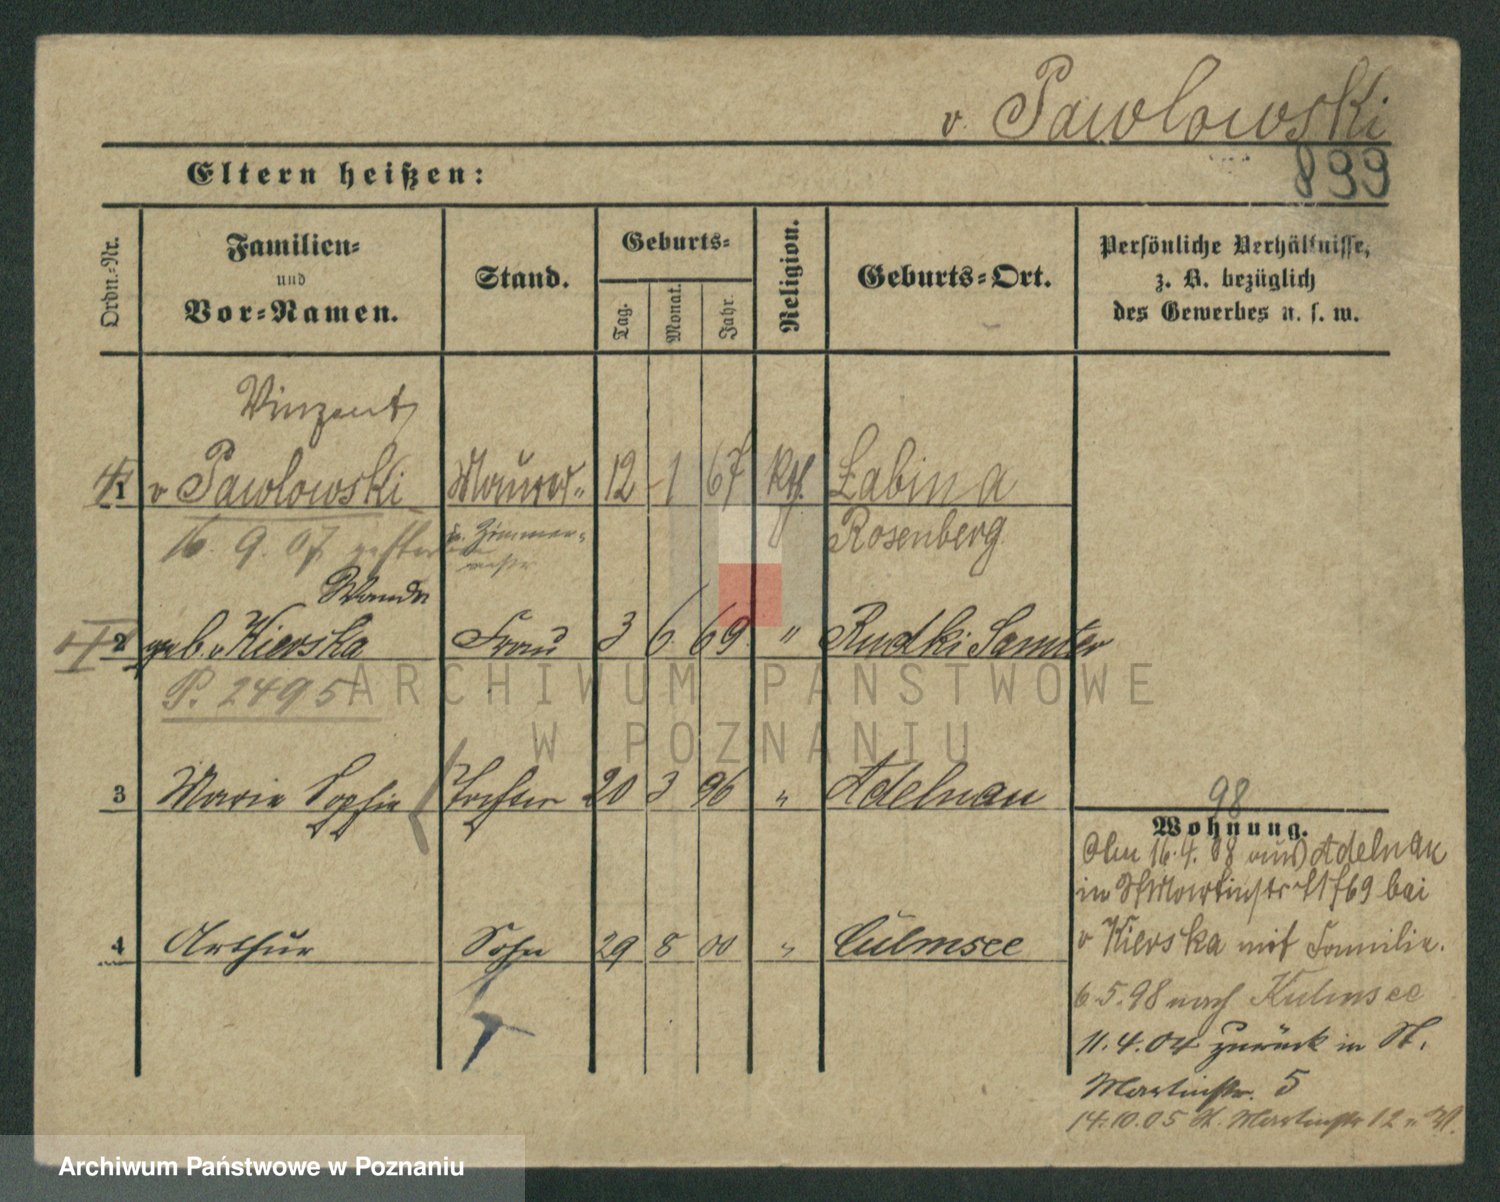 v. Pawlowski
899
Eltern heißen:
Ordn.-Nr.
Familien-
und
Vor-Namen.
Stand.
Geburts-
Tag.
Monat.
Jahr.
Religion.
Geburts-Ort.
Persönliche Verhältnisse,
z. B. bezüglich
des Gewerbes u. s. w.
Vinzent
1 v Pawlowski Maurer- 12 1 67 kth. Łabina
16. 9. 07 gestorben u. Zimmer- Rosenberg
meister
Wanda
2 geb. v Kierska Frau 3 6 69 " Rudki Samter
P. 2495
3 Marie Sophie Tochter 20 3 96 " Adelnau
4 Arthur Sohn 29 8 00 " Culmsee
98
Wohnung.
Am 16.4.98 aus Adelnau
in St Martinstr 69 bei
v Kierska mit Familie.
6.5.98 nach Kulmsee
11.4.04 zurück in St.
Martinstr. 5
14.10.05 St. Martinstr 12
ARCHIWUM PAŃSTWOWE
W POZNANIU
Archiwum Państwowe w Poznaniu